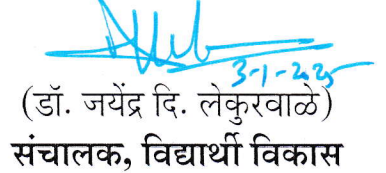 3-1-2025
(डॉ. जयेंद्र दि. लेकुरवाळे)
संचालक, विद्यार्थी विकास